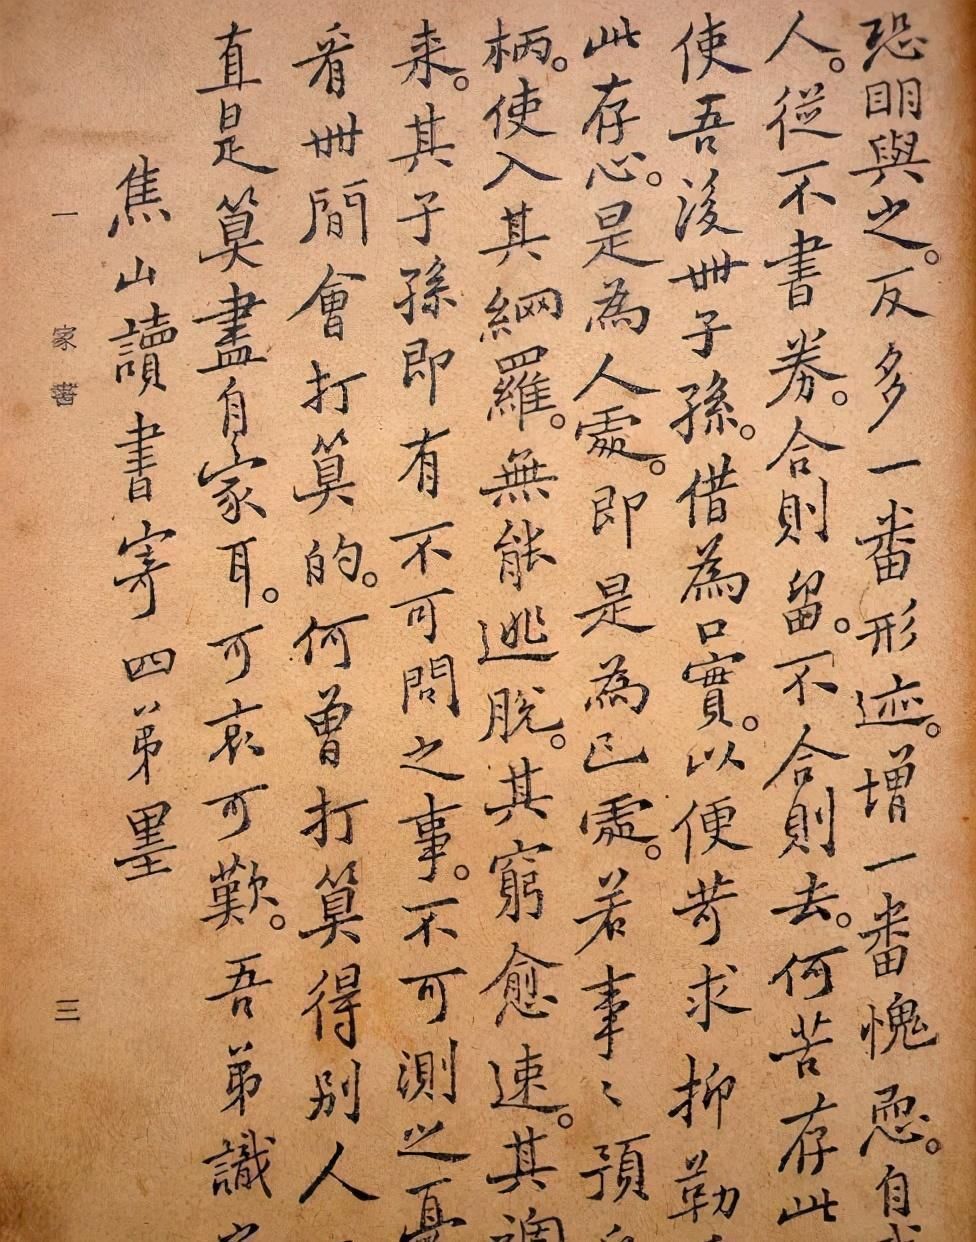 恐明與之。反多一番形迹。增一番愧恧。自
人。從不書券。合則留。不合則去。何苦存此
使吾後世子孫。借為口實。以便苛求抑勒
此存心。是為人處。即是為己處。若事事預
柄。使入其網羅。無能逃脫。其窮愈速。其
来。其子孫即有不可問之事。不可測之
看世間會打算的。何曾打算得別人
直是算盡自家耳。可哀可歎。吾弟識
焦山讀書寄四弟墨
一 家書 三